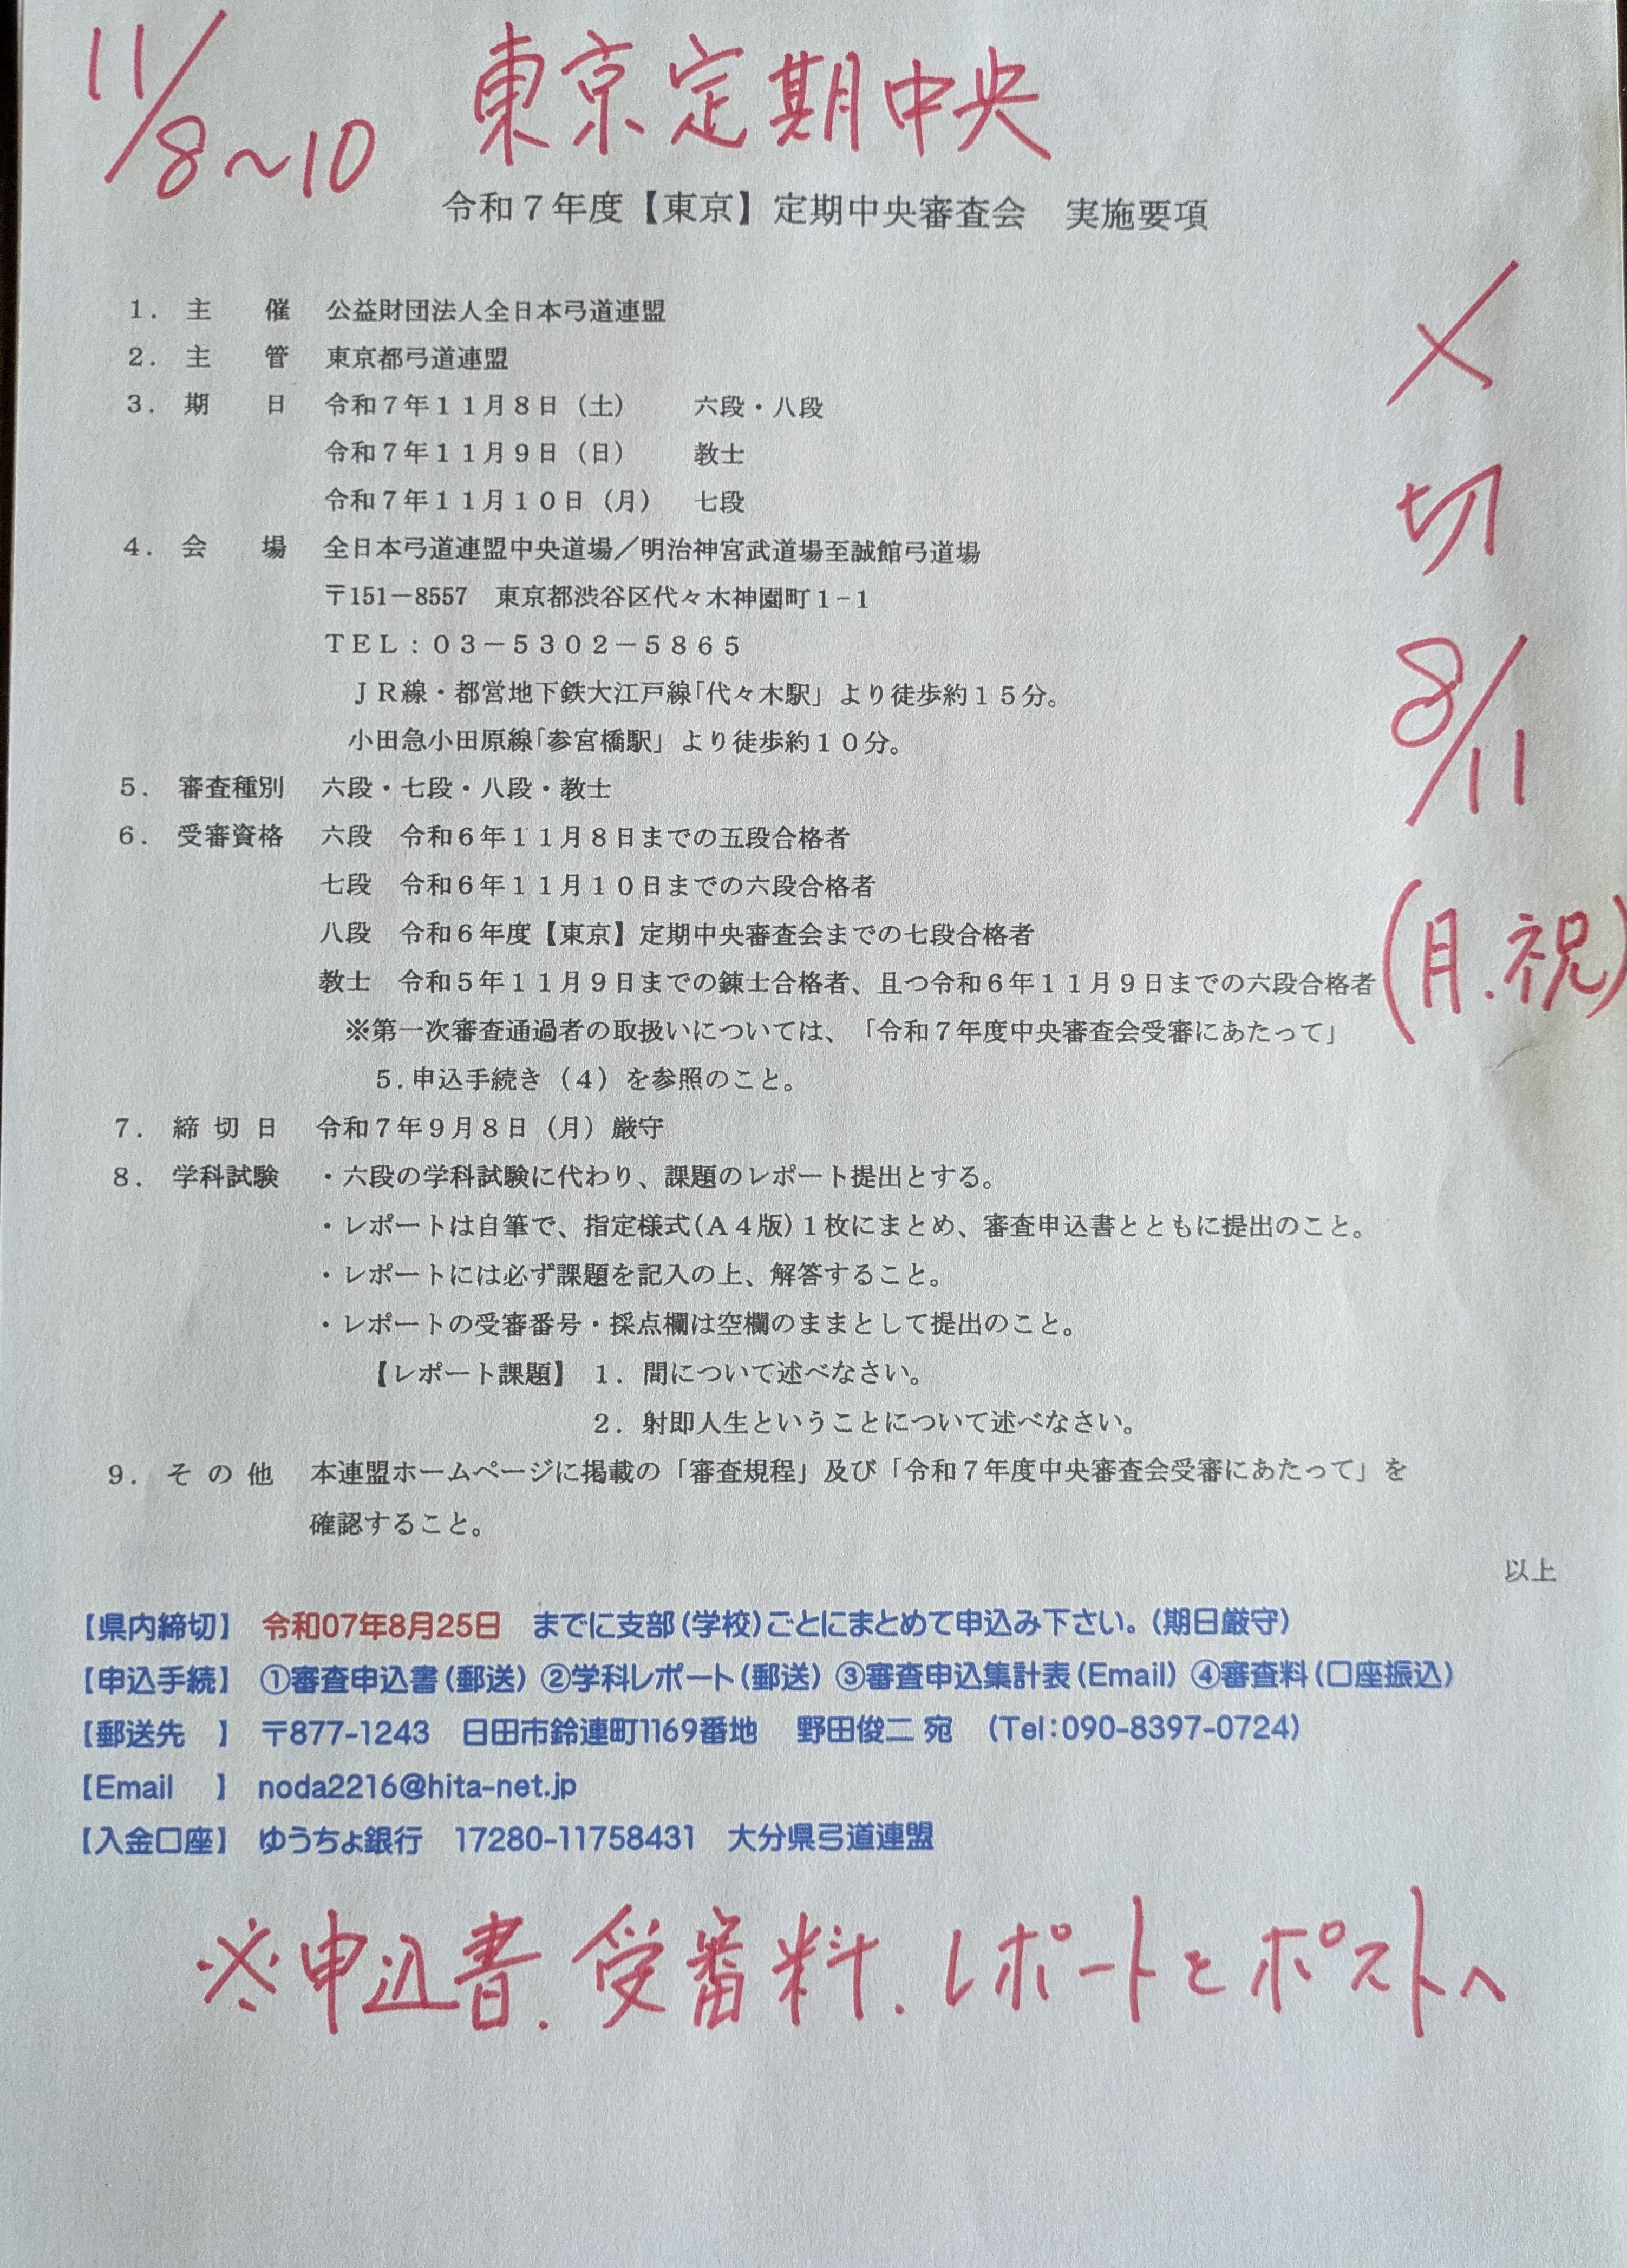 11/8～10 東京定期中央
令和７年度【東京】定期中央審査会　実施要項
〆切 8/11 (月.祝)
１．主　　催　公益財団法人全日本弓道連盟
２．主　　管　東京都弓道連盟
３．期　　日　令和７年１１月８日（土）　　六段・八段
令和７年１１月９日（日）　　教士
令和７年１１月１０日（月）　七段
４．会　　場　全日本弓道連盟中央道場／明治神宮武道場至誠館弓道場
〒151－8557　東京都渋谷区代々木神園町１−１
ＴＥＬ：０３－５３０２－５８６５
ＪＲ線・都営地下鉄大江戸線｢代々木駅」より徒歩約１５分。
小田急小田原線｢参宮橋駅」より徒歩約１０分。
５．審査種別　六段・七段・八段・教士
６．受審資格　六段　令和６年１１月８日までの五段合格者
七段　令和６年１１月１０日までの六段合格者
八段　令和６年度【東京】定期中央審査会までの七段合格者
教士　令和５年１１月９日までの錬士合格者、且つ令和６年１１月９日までの六段合格者
※第一次審査通過者の取扱いについては、「令和７年度中央審査会受審にあたって」
５.申込手続き（４）を参照のこと。
７．締 切 日　令和７年９月８日（月）厳守
８．学科試験　・六段の学科試験に代わり、課題のレポート提出とする。
・レポートは自筆で、指定様式(Ａ４版)１枚にまとめ、審査申込書とともに提出のこと。
・レポートには必ず課題を記入の上、解答すること。
・レポートの受審番号・採点欄は空欄のままとして提出のこと。
【レポート課題】 １．間について述べなさい。
２．射即人生ということについて述べなさい。
９．そ の 他　本連盟ホームページに掲載の「審査規程」及び「令和７年度中央審査会受審にあたって」を
確認すること。
以上
【県内締切】　令和07年8月25日　までに支部(学校)ごとにまとめて申込み下さい。(期日厳守)
【申込手続】　①審査申込書(郵送) ②学科レポート(郵送) ③審査申込集計表(Email) ④審査料(口座振込)
【郵送先　】　〒877-1243　日田市鈴連町1169番地　野田俊二 宛　(Tel:090-8397-0724)
【Email　】　noda2216@hita-net.jp
【入金口座】　ゆうちょ銀行　17280-11758431　大分県弓道連盟
※申込書.受審料.レポートとポストへ